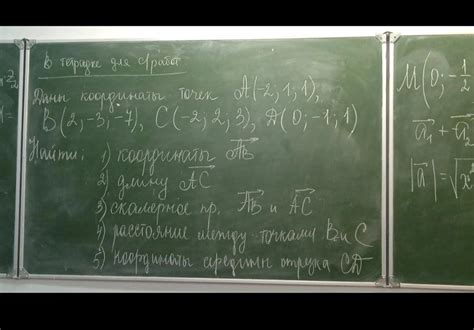 В тетрадке для с/работ
Даны координаты точек A(-2; 1; 1),
B(2; -3; -7), C(-2; 2; 3), D(0; -1; 1)
Найти: 1) координаты AB
2) длину AC
3) скалярное пр. AB и AC
4) расстояние между точками B и C
5) координаты середины отрезка CD
M(0; -1/2
a₁ + a₂
|a| = √x²